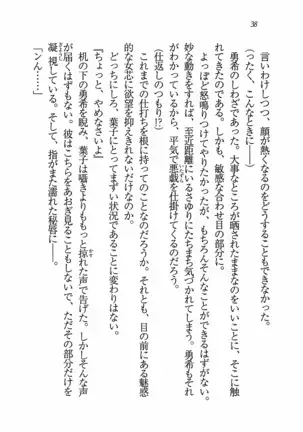 38
言いわけしつつ、顔が熱くなるのをどうすることもできない。
（ったく、こんなときに――）
勇希のしわざである。大事なところが晒されたままなのをいいことに、そこに触
れてきたのである。しかも、敏感な合わせ目の部分に。
よっぽど怒鳴りつけてやりたかったが、もちろんそんなことができるはずがない。
妙な動きをすれば、至近距離にいるさゆりにたちまち気づかれてしまう。勇希もそれ
がわかっているから、平気で悪戯を仕掛けてくるのだろう。
（仕返しのつもり!?）
これまでの仕打ちを根に持ってのことなのだろうか。それとも、目の前にある魅惑
的な女芯に欲望を抑えきれないだけなのか。
どっちにしろ、葉子にとってまずい状況であることに変わりはない。
『ちょっと、やめなさいよ』
机の下の勇希を睨み、葉子は囁きよりももっと掠れた声で告げた。しかしそんな声
が届くはずもない。彼はこちらをあおぎ見ることもしないで、ただその部分だけを
凝視している。そして、指がまた濡れた秘唇に――。
「ンん……」